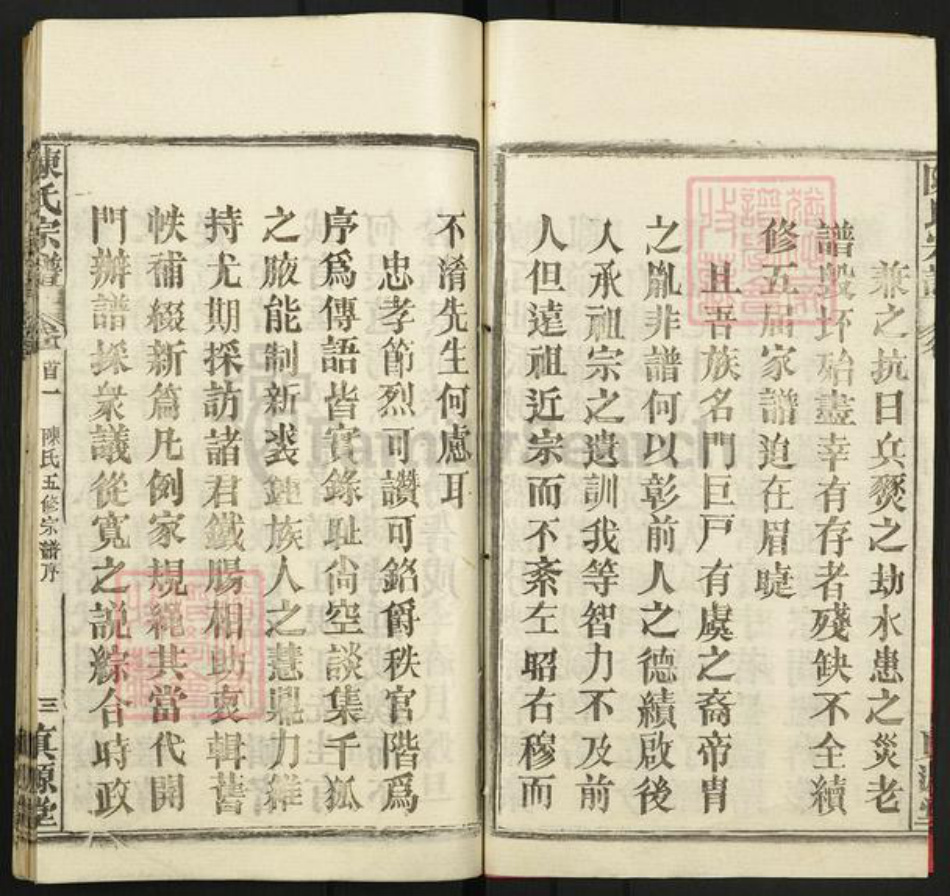 兼之抗日兵燹之劫水患之災老
譜毀坏殆盡幸有存者殘缺不全續
修五届家譜迫在眉睫
且吾族名門巨戸有虞之裔帝胄
之胤非譜何以彰前人之德績啟後
人承祖宗之遺訓我等智力不及前
人但遠祖近宗而不紊左昭右穆而
不淆先生何慮耳
忠孝節烈可讚可銘爵秩官階爲
序爲傳語皆實錄耻尙空談集千狐
之腋能制新裘鉦族人之慧鼎力維
持尤期採訪諸君鐵腸相助裒輯舊
帙補綴新篇凡例家規繩其當代開
門辦譜採衆議從寬之説綜合時政
陳氏宗譜
首一
陳氏五修宗譜序
三
真源堂